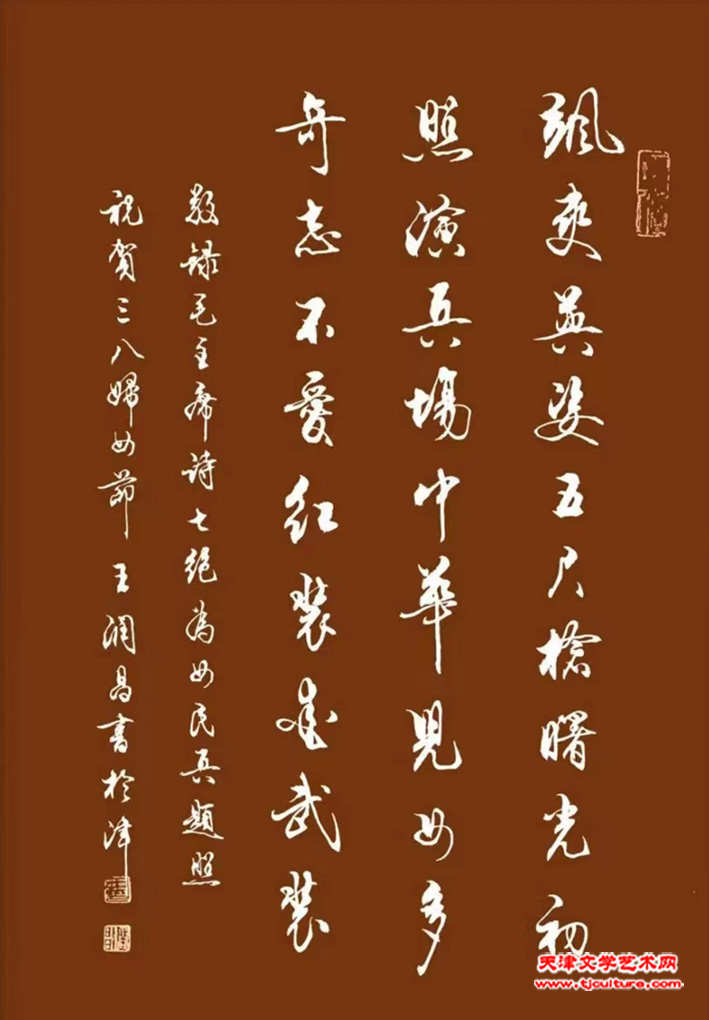 飒爽英姿五尺槍曙光初
照演兵場中華兒女多
奇志不爱红装爱武装
敬録毛主席诗七绝为女民兵题照
祝贺三八婦女節王潤昌書於津
天津文学艺术网
www.tjculture.com